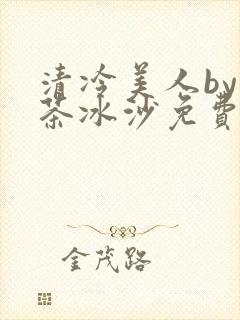 清冷美人by
茶冰沙免費
金茂路